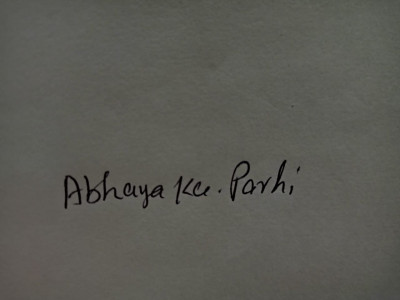 Abhaya Ku. Parhi